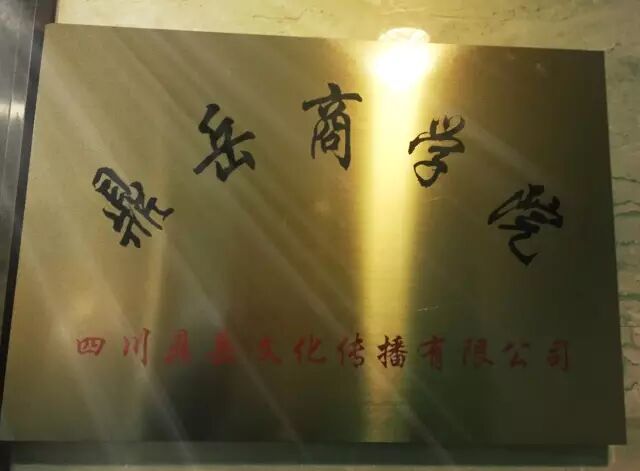 岳商学
四川岳文化传播有限公司